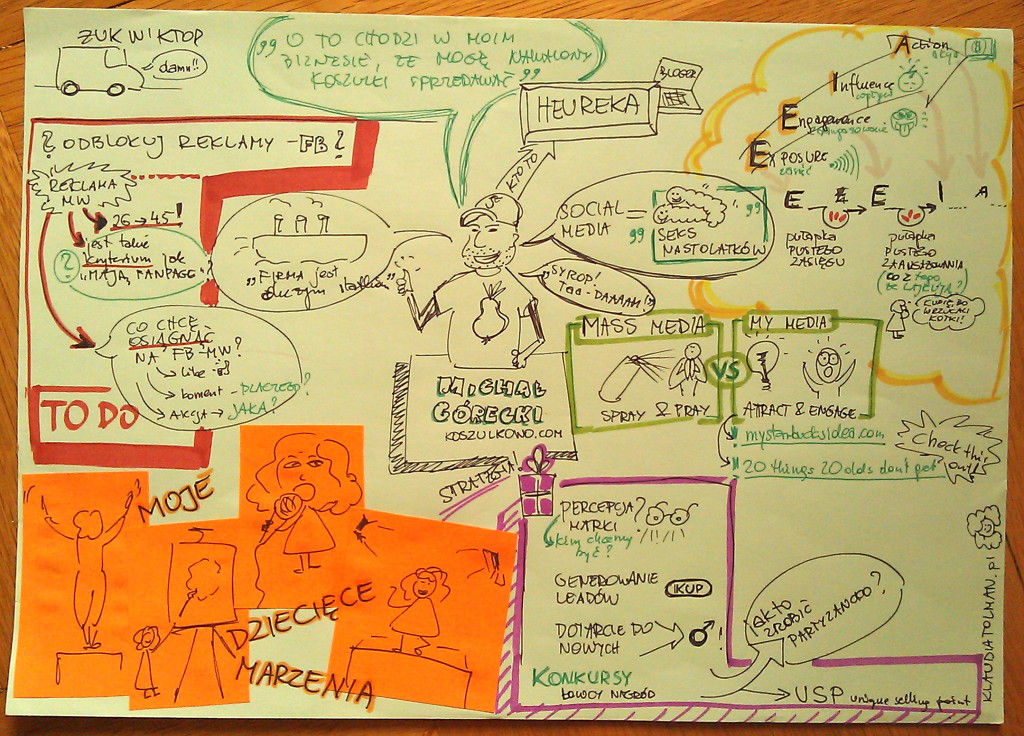 ŻUK W KTOP
damn!!
„O TO CHODZI W MOIM
BIZNESIE, ŻE MOGĘ NAWALONY
KOSZULKI SPRZEDAWAĆ"
HEUREKA
BLOGER
KTO TO
Action
Influence
wpływ
Engagement
zaangażowanie
Exposure
zasięg
E E E I A
pułapka
PUSTEGO
ZASIĘGU
pułapka
PUSTEGO
ZAANGAŻOWANIA
(CO Z tego
że LAJKUJĄ?)
WRZUCAĆ
KOTKI!
? ODBLOKUJ REKLAMY - FB ?
REKLAMA
MW
26 → 45!
?
jest takie
kryterium jak
"MAJĄ FANPAGE"
"FIRMA jest
dużym statkiem"
SOCIAL
MEDIA
=
„SEKS
NASTOLATKÓW"
"SYROP!
TAA-DAAAAM!"
CO CHCĘ
OSIĄGNĄĆ
NA FB-MW?
→ like
→ koment - DLACZEGO?
→ AKCJA → JAKA?
TO DO
MICHAŁ
GÓRECKI
KOSZULKOWO.COM
MASS MEDIA
SPRAY & PRAY
VS
MY MEDIA
ATTRACT & ENGAGE
mystarbucksidea.com
20 things 20 olds don't get
Check this
out!
STRATEGIA!
MOJE
DZIECIĘCE
MARZENIA
PERCEPCJA
MARKI
?
Kim chcemy
być?
GENEROWANIE
LEADÓW
KUP
DOTARCIE DO
NOWYCH
!
KONKURSY
ŁOWCY NAGRÓD
JAK TO
ZROBIĆ
PARTYZANCKO?
USP unique selling point
KLAUDIATOLMAN.pl